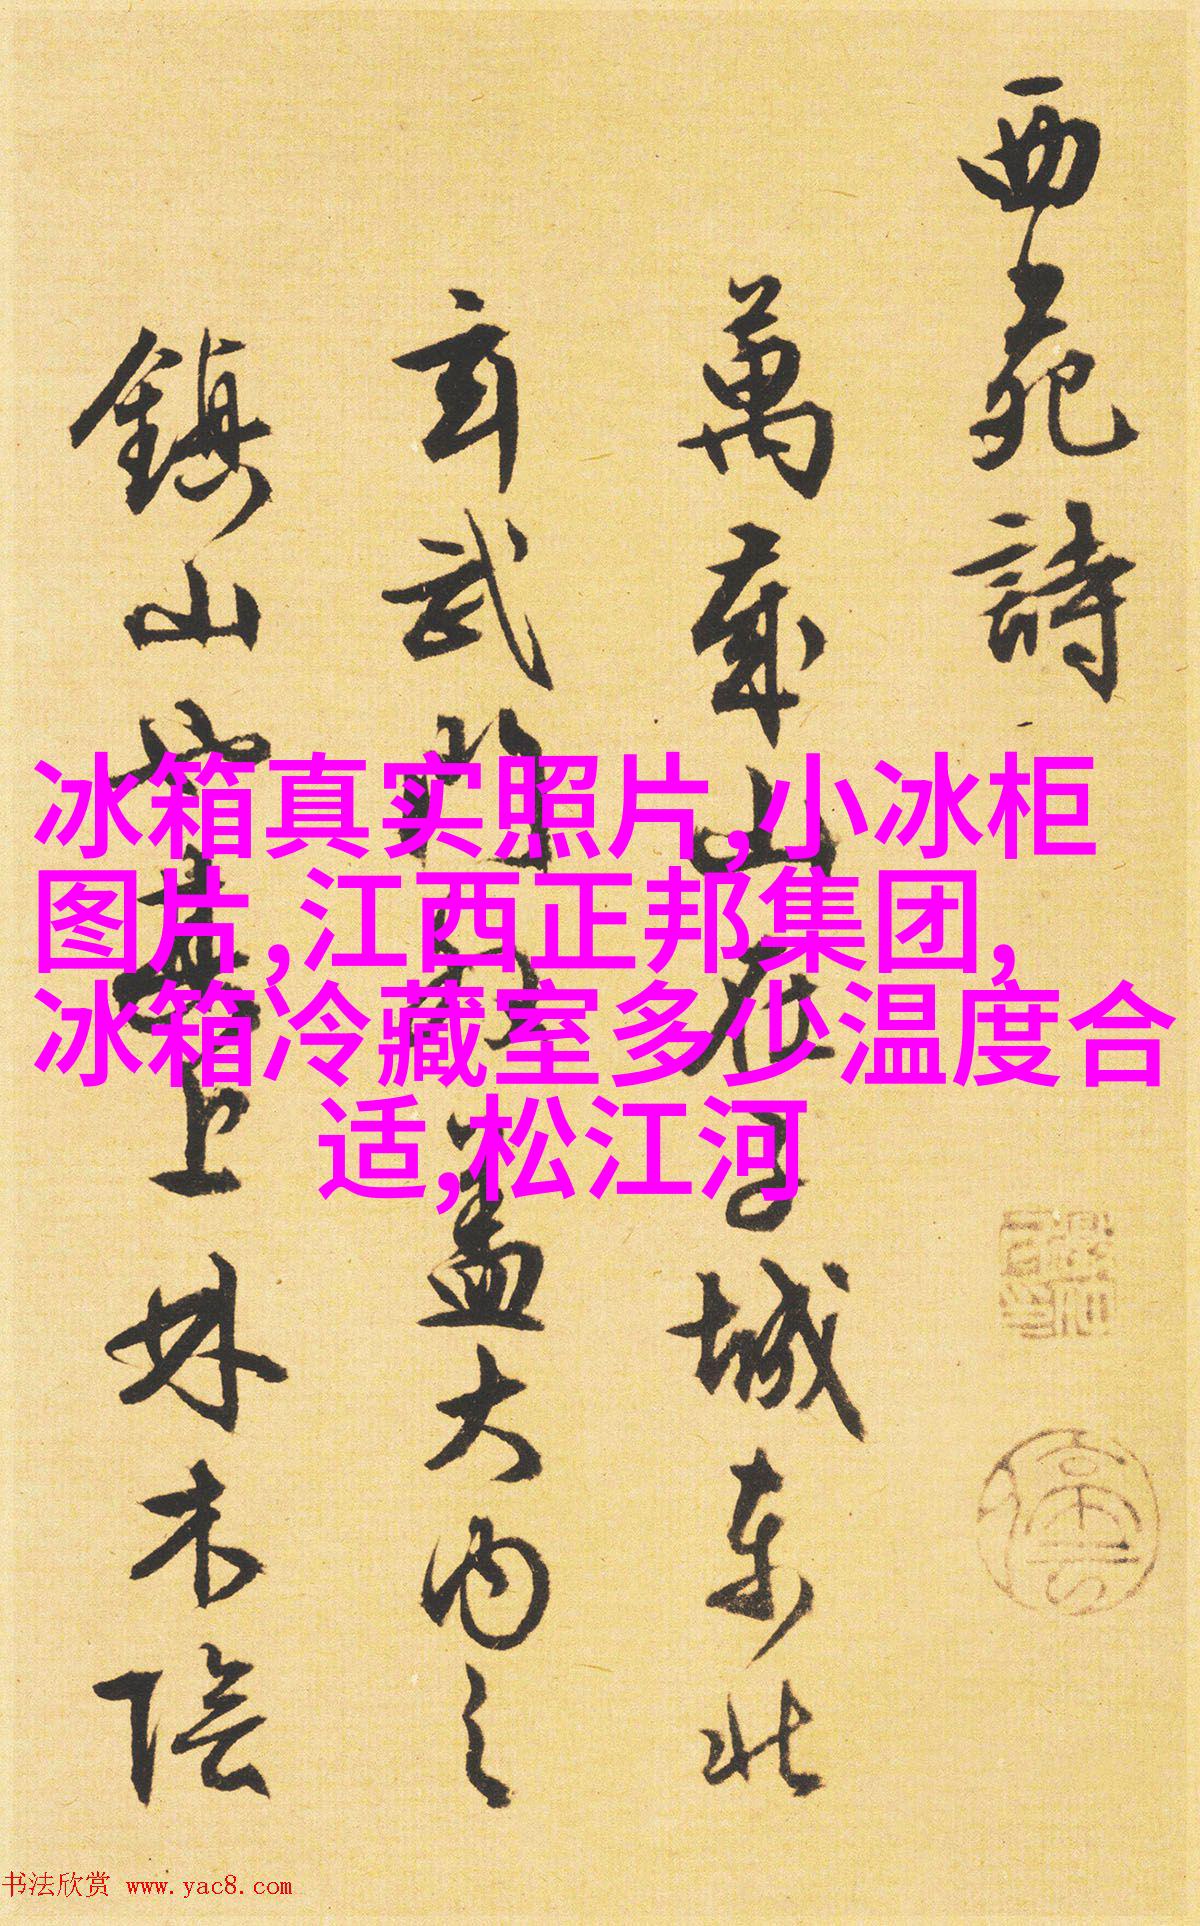 西苑詩
萬歲山在子城東北
玄武門外蓋大內之
鎮山也其上林木陰
冰箱真实照片,小冰柜
图片,江西正邦集团,
冰箱冷藏室多少温度合
适,松江河
书法欣赏 www.yac8.com